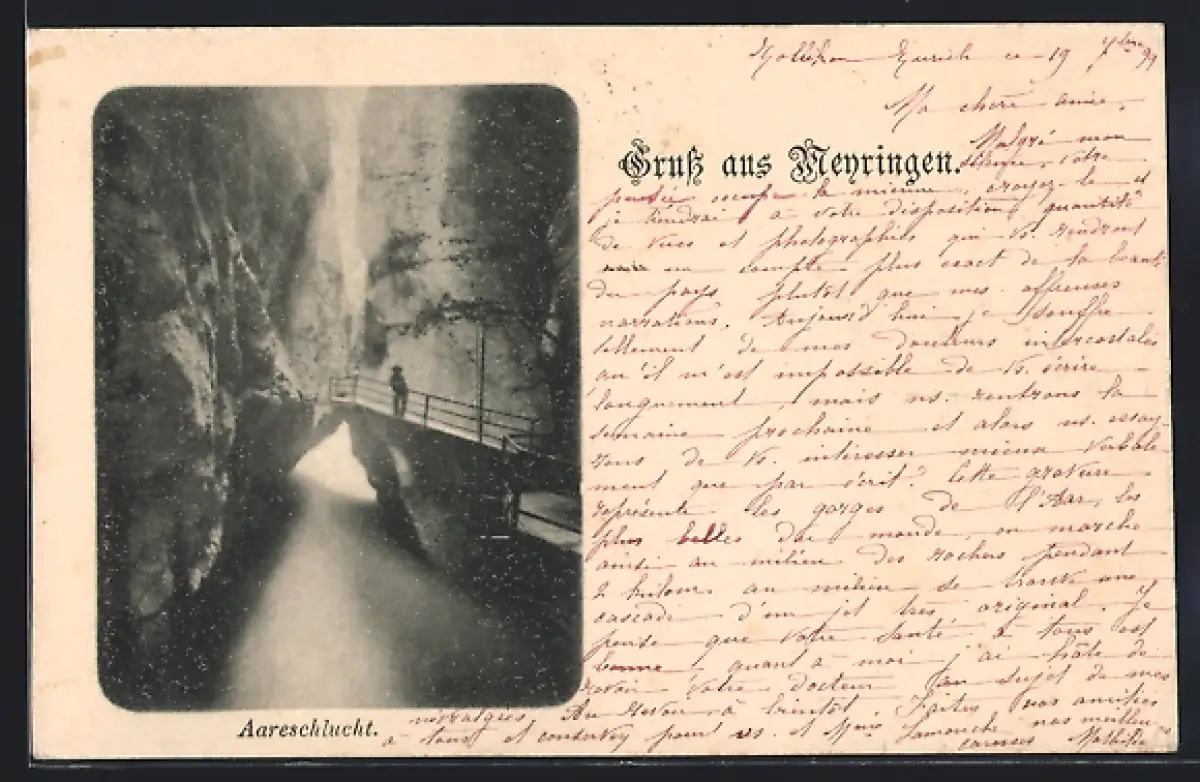 Zurich ce 19 7bre 99
Ma chère amie,
Gruß aus Meyringen.
Malgré mon
silence, votre
pensée occupe la mienne, croyez-le et
je tiendrai à votre disposition quantité
de vues et photographies qui vs. rendront
un compte plus exact de la beauté
du pays plutôt que mes affreuses
narrations. Aujourd'hui je souffre
tellement de mes douleurs intercostales
qu'il m'est impossible de vs. écrire
longuement, mais ns. rentrons la
semaine prochaine et alors ns. essay-
rons de vs. intéresser mieux verbale-
ment que par écrit. Cette gravure
représente les gorges de l'Aar, les
plus belles du monde, on marche
ainsi au milieu des rochers pendant
2 kilom. au milieu se trouve une
cascade d'un jet très original. Je
pense que votre santé à tous est
bonne, quant à moi j'ai hâte de
revoir votre docteur au sujet de mes
névralgies. Au revoir à bientôt. Faites nos amitiés
à tous et conservez pour vs. et Mme nos meilleures
caresses Mathilde
Aareschlucht.